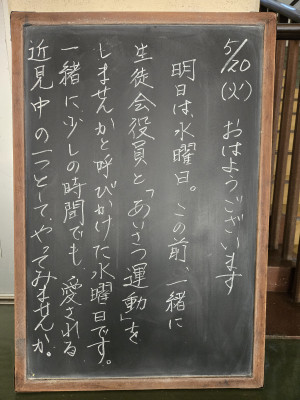 5/20(火) おはようございます
明日は、水曜日。この前、一緒に
生徒会役員と「あいさつ運動」を
しませんかと呼びかけた水曜日です。
一緒に、少しの時間でも、愛される
近見中の一つとして、やってみませんか。